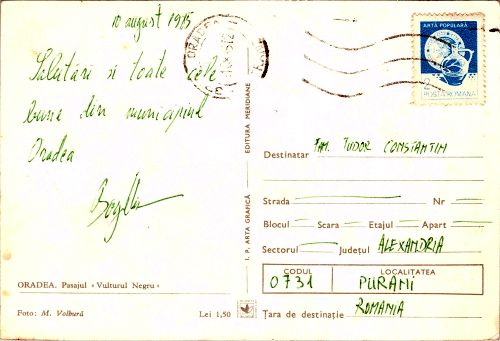 10 august 1985
Salutări și toate cele
bune din municipiul
Oradea
ORADEA. Pasajul «Vulturul Negru»
Foto: M. Volbură
Lei 1,50
I. P. ARTA GRAFICĂ
EDITURA MERIDIANE
ORADEA
ARTĂ POPULARĂ
POSTA ROMANA
Destinatar FAM. TUDOR CONSTANTIN
Strada Nr
Blocul Scara Etajul Apart
Sectorul Județul ALEXANDRIA
CODUL LOCALITATEA
0731 PURANI
Țara de destinație ROMANIA